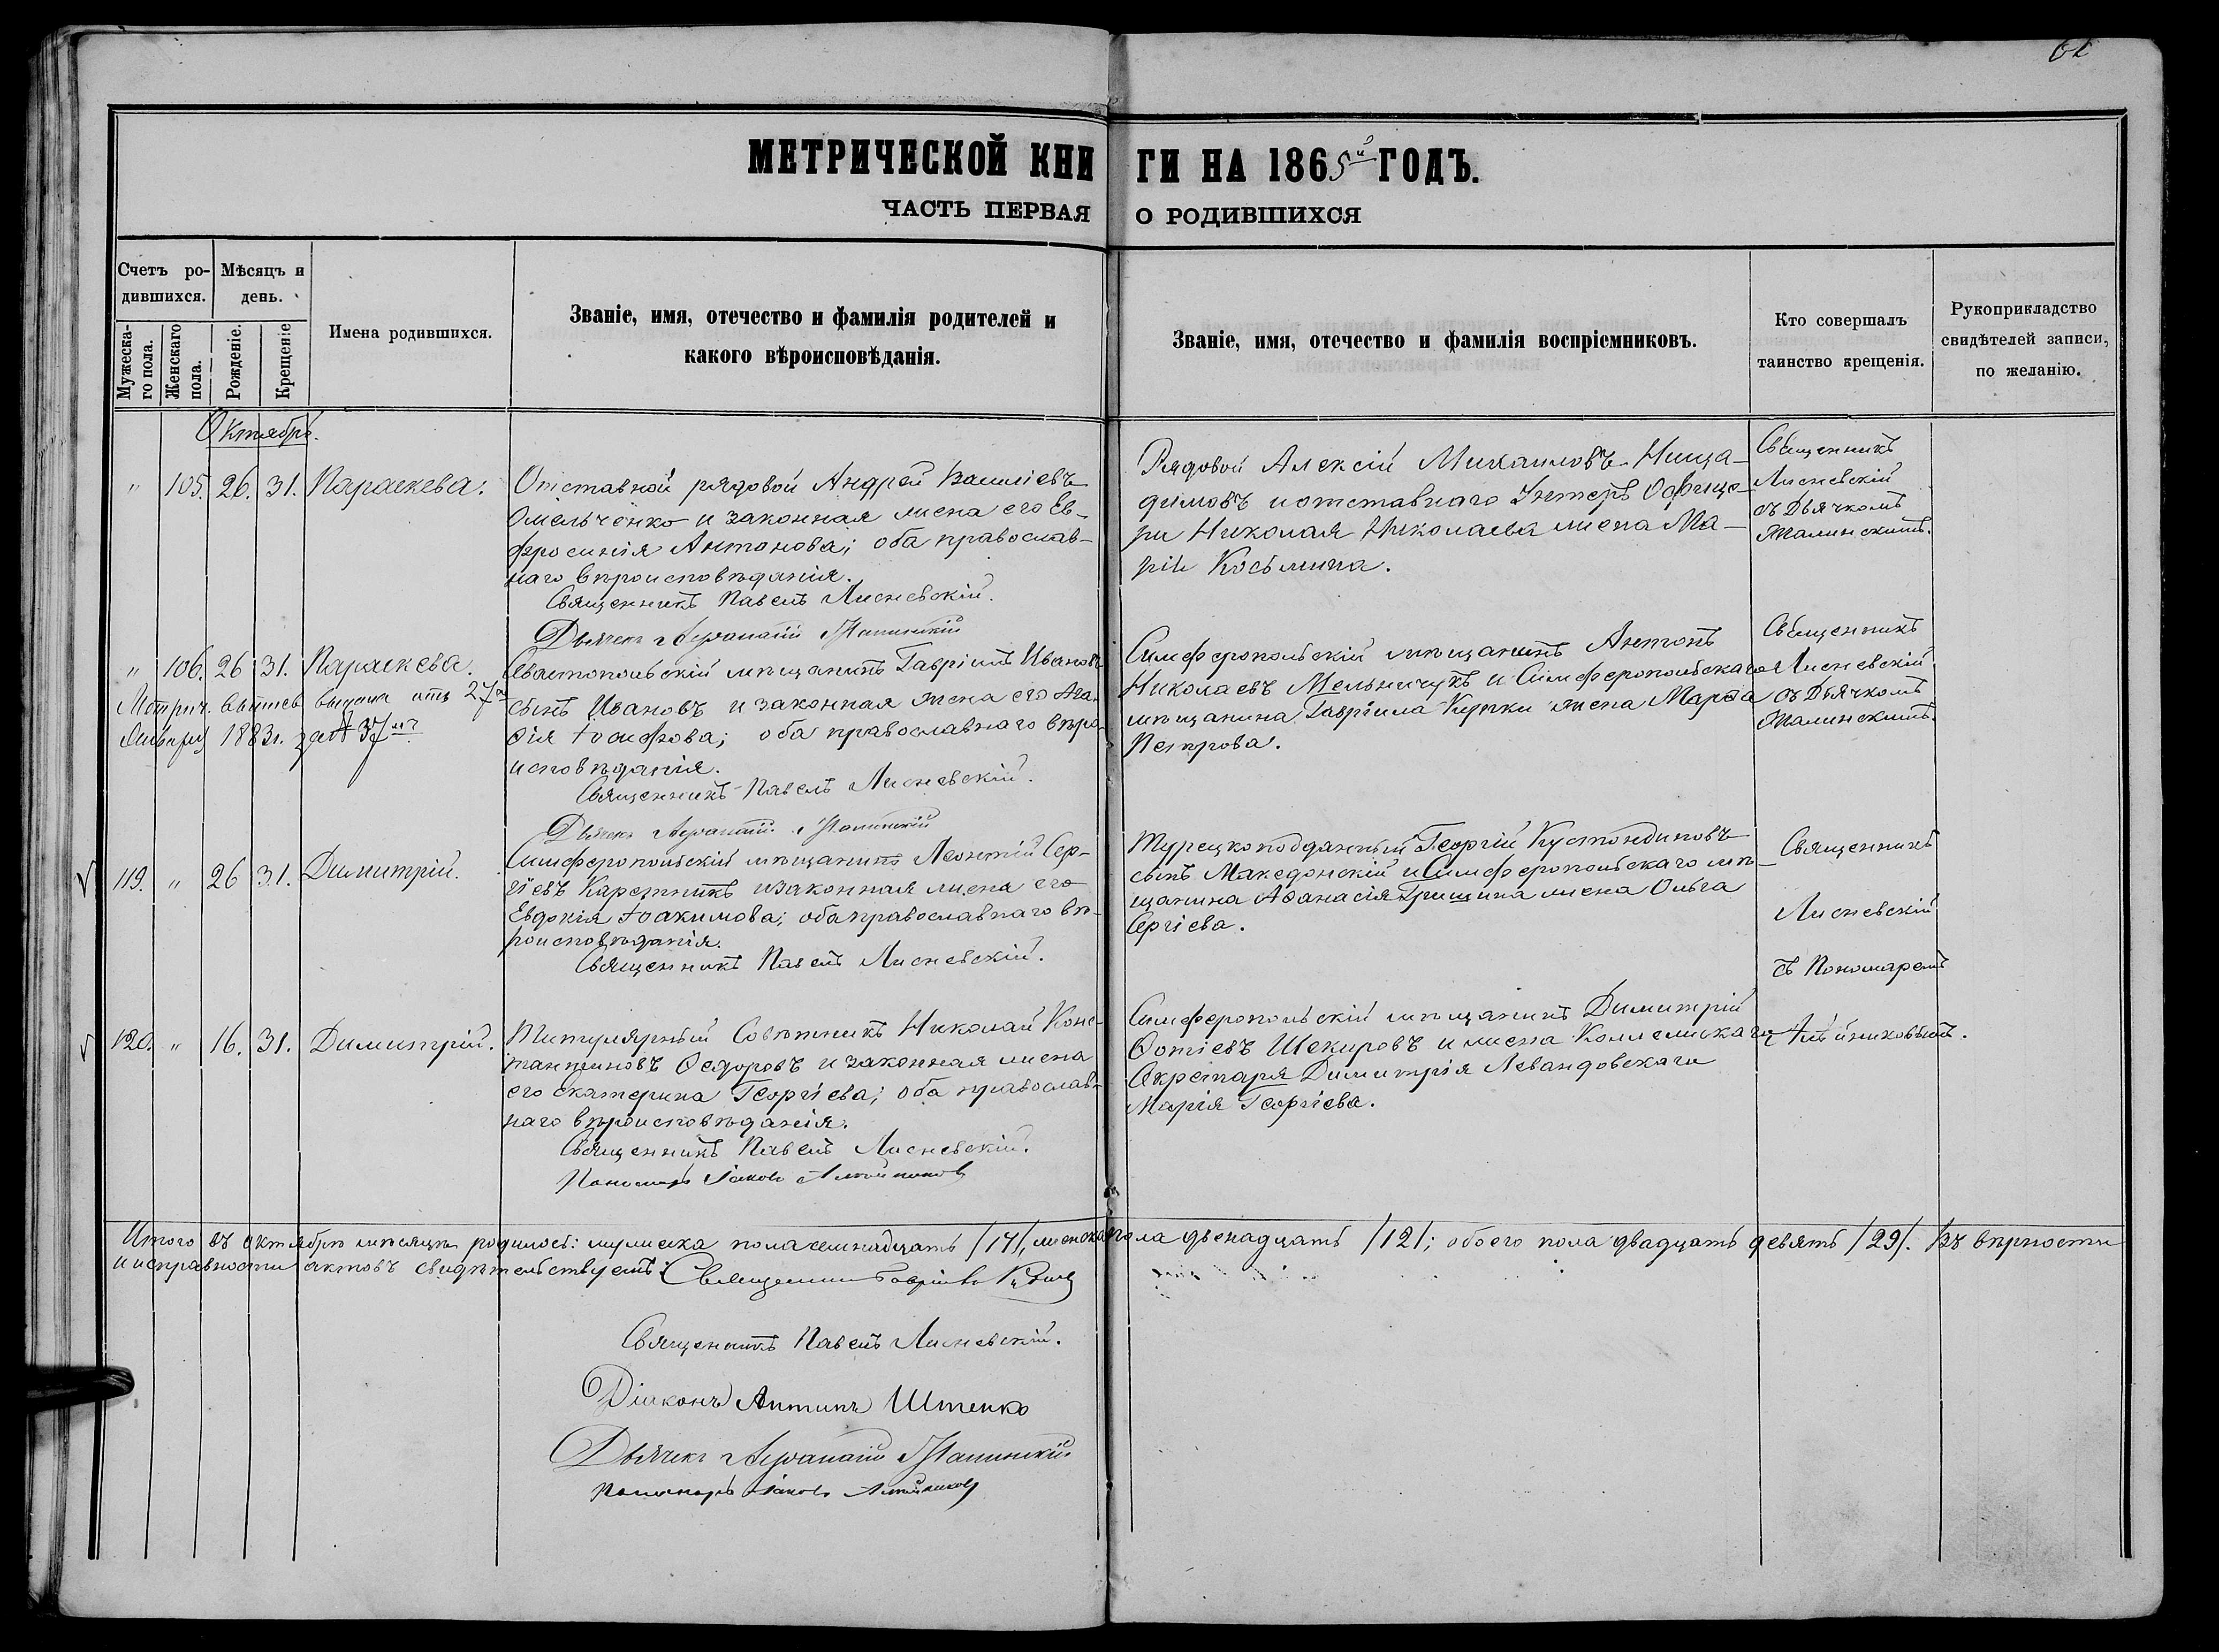 МЕТРИЧЕСКОЙ КНИ ГИ НА 1865й ГОДЪ.
ЧАСТЬ ПЕРВАЯ О РОДИВШИХСЯ
Счетъ ро-
дившихся.
Мужеска-
го пола.
Женскаго
пола.
Мѣсяцъ и
день.
Рожденіе.
Крещеніе
Имена родившихся.
Званіе, имя, отечество и фамилія родителей и
какого вѣроисповѣданія.
Званіе, имя, отечество и фамилія воспріемниковъ.
Кто совершалъ
таинство крещенія.
Рукоприкладство
свидѣтелей записи,
по желанію.
Октябрь.
" 105. 26. 31. Параскева.
Отставной рядовой Андрей Василіевъ
Омельченко и законная жена его Ев-
фросинія Антонова; оба православ-
наго вѣроисповѣданія.
Священникъ Павелъ Лисневскій.
Дьячекъ
Рядовой Алексій Михаиловъ
и отставнаго Унтеръ Офице-
ра Николая Николаева жена Ма-
рія Косьмина.
Священникъ
Лисневскій
съ Дьячкомъ
" 106. 26 31. Параскева.
Метрич. выпись выдана отъ 27го
Января 1883г. за № 37мъ
Севастопольскій мѣщанинъ Гавріилъ Ивановъ
сынъ Ивановъ и законная жена его Ага-
фія Іосифова; оба православнаго вѣро-
исповѣданія.
Священникъ Павелъ Лисневскій.
Дьячекъ
Симферопольскій мѣщанинъ Антонъ
Николаевъ Мельничукъ и Симферопольскаго
мѣщанина Гавріила жена Марѳа
Петрова.
Священникъ
Лисневскій
съ Дьячкомъ
119. " 26 31. Димитрій.
Симферопольскій мѣщанинъ Леонтій Сер-
гіевъ Каретникъ и законная жена его
Евдокія Іоакимова; оба православнаго вѣ-
роисповѣданія.
Священникъ Павелъ Лисневскій.
Турецкоподданный Георгій
сынъ Македонскій и Симферопольскаго мѣ-
щанина Аѳанасія Грищина жена Ольга
Сергіева.
Священникъ
Лисневскій
съ Пономаремъ
120. " 16. 31. Димитрій.
Титулярный Совѣтникъ Николай Конс-
тантиновъ Ѳедоровъ и законная жена
его Екатерина Георгіева; оба православ-
наго вѣроисповѣданія.
Священникъ Павелъ Лисневскій.
Пономарь Іаковъ
Симферопольскій мѣщанинъ Димитрій
Фотіевъ Шекировъ и жена Коллежскаго
Секретаря Димитрія Левандовскаго
Марія Георгіева.
Итого въ октябрѣ мѣсяцѣ родилось: мужеска пола семнадцать /17/, женска пола двенадцать /12/; обоего пола двадцать девять /29/. Въ вѣрности
и исправности актовъ свидѣтельствуемъ: Священникъ Гавріилъ
Священникъ Павелъ Лисневскій.
Діаконъ Антипъ Штенко
Дьячекъ
Пономарь Іаковъ